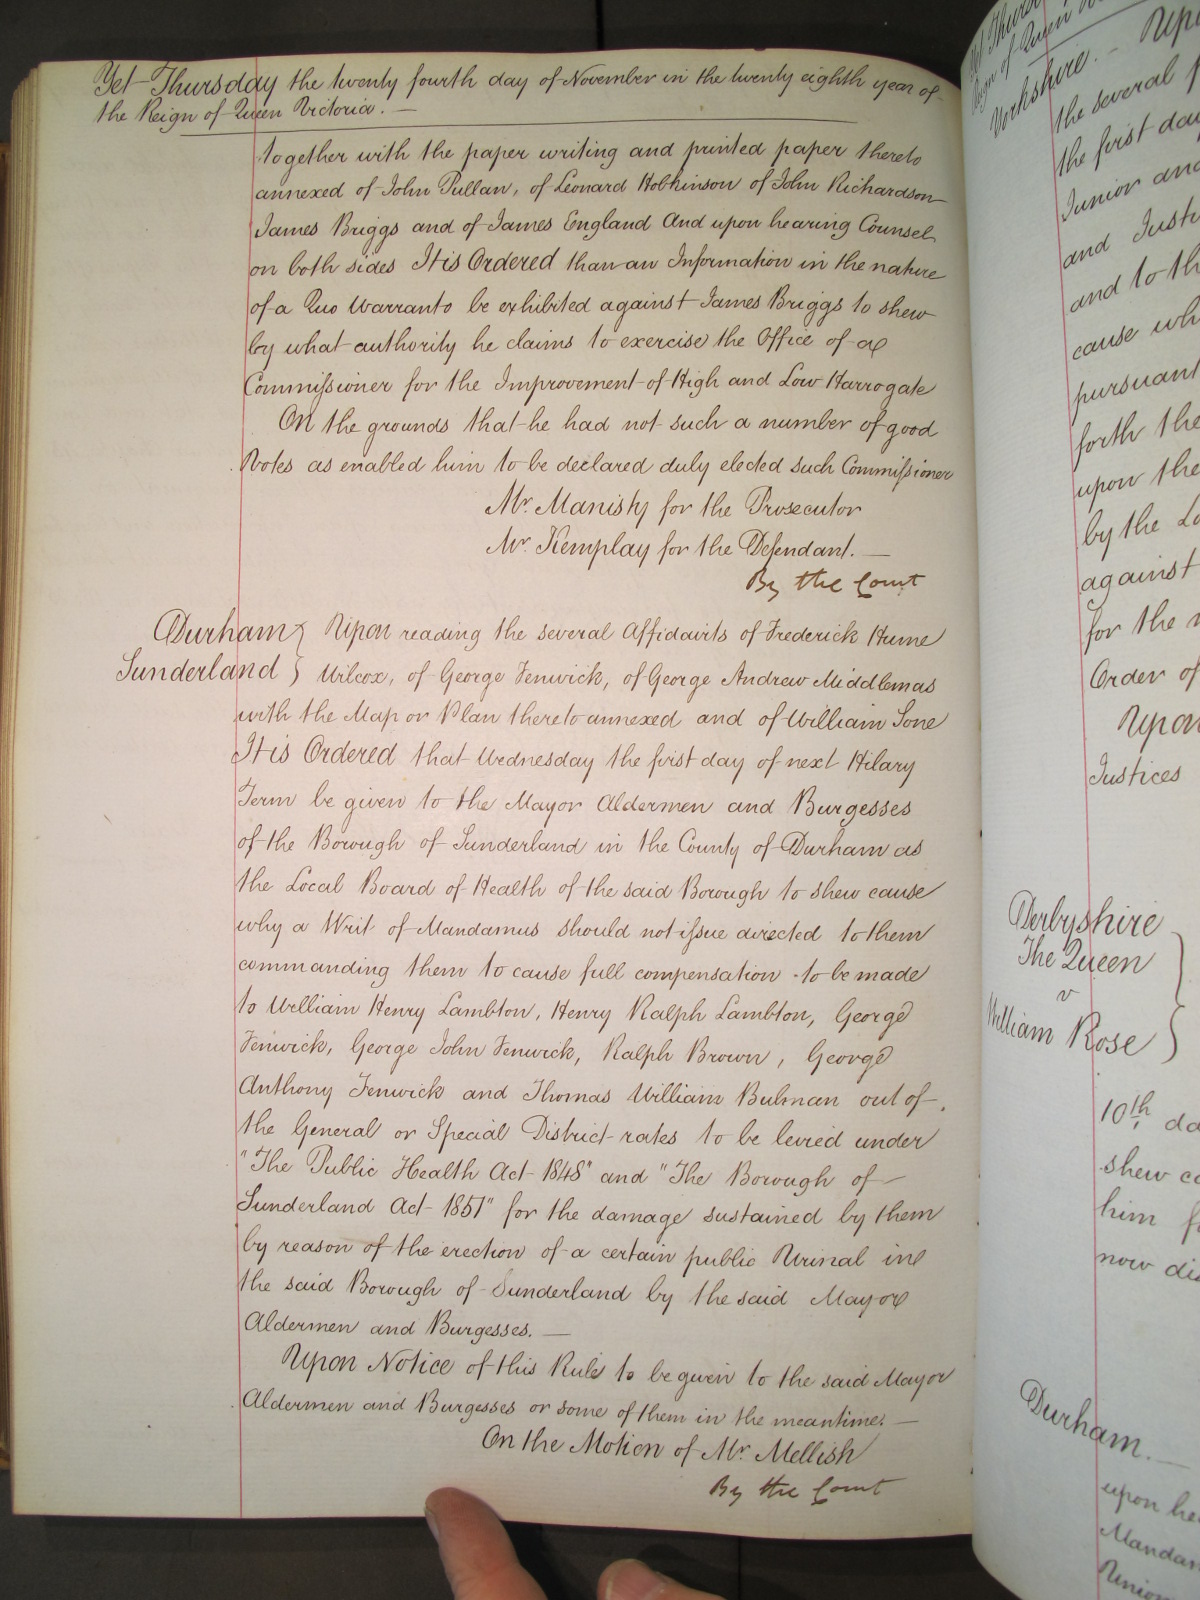 Yet Thursday the twenty fourth day of November in the twenty eighth year of
the Reign of Queen Victoria. —
together with the paper writing and printed paper thereto
annexed of John Pullan, of Leonard Hobkinson of John Richardson
James Briggs and of James England And upon hearing Counsel
on both sides It is Ordered than an Information in the nature
of a Quo Warranto be exhibited against James Briggs to shew
by what authority he claims to exercise the Office of a
Commissioner for the Improvement of High and Low Harrogate
On the grounds that he had not such a number of good
Votes as enabled him to be declared duly elected such Commissioner
Mr. Manisty for the Prosecutor
Mr. Kemplay for the Defendant. —
By the Court
Durham } Upon reading the several Affidavits of Frederick Hume
Sunderland } Wilcox, of George Fenwick, of George Andrew Middlemas
with the Map or Plan thereto annexed and of William Sone
It is Ordered that Wednesday the first day of next Hilary
Term be given to the Mayor Aldermen and Burgesses
of the Borough of Sunderland in the County of Durham as
the Local Board of Health of the said Borough to shew cause
why a Writ of Mandamus should not issue directed to them
commanding them to cause full compensation to be made
to William Henry Lambton, Henry Ralph Lambton, George
Fenwick, George John Fenwick, Ralph Brown, George
Anthony Fenwick and Thomas William Bulman out of
the General or Special District rates to be levied under
"The Public Health Act 1848" and "The Borough of
Sunderland Act 1851" for the damage sustained by them
by reason of the erection of a certain public Urinal in
the said Borough of Sunderland by the said Mayor
Aldermen and Burgesses. —
Upon Notice of this Rule to be given to the said Mayor
Aldermen and Burgesses or some of them in the meantime. —
On the Motion of Mr. Mellish
By the Court
Yorkshire. — Upo
the several
the first day
Junior and
and Justi
and to th
cause wh
pursuant
forth the
upon the
by the Lo
against
for the
Order of
Upon
Justices
Derbyshire
The Queen
v
William Rose }
10th da
shew ca
him f
now di
Durham. —
upon he
Mandam
Union